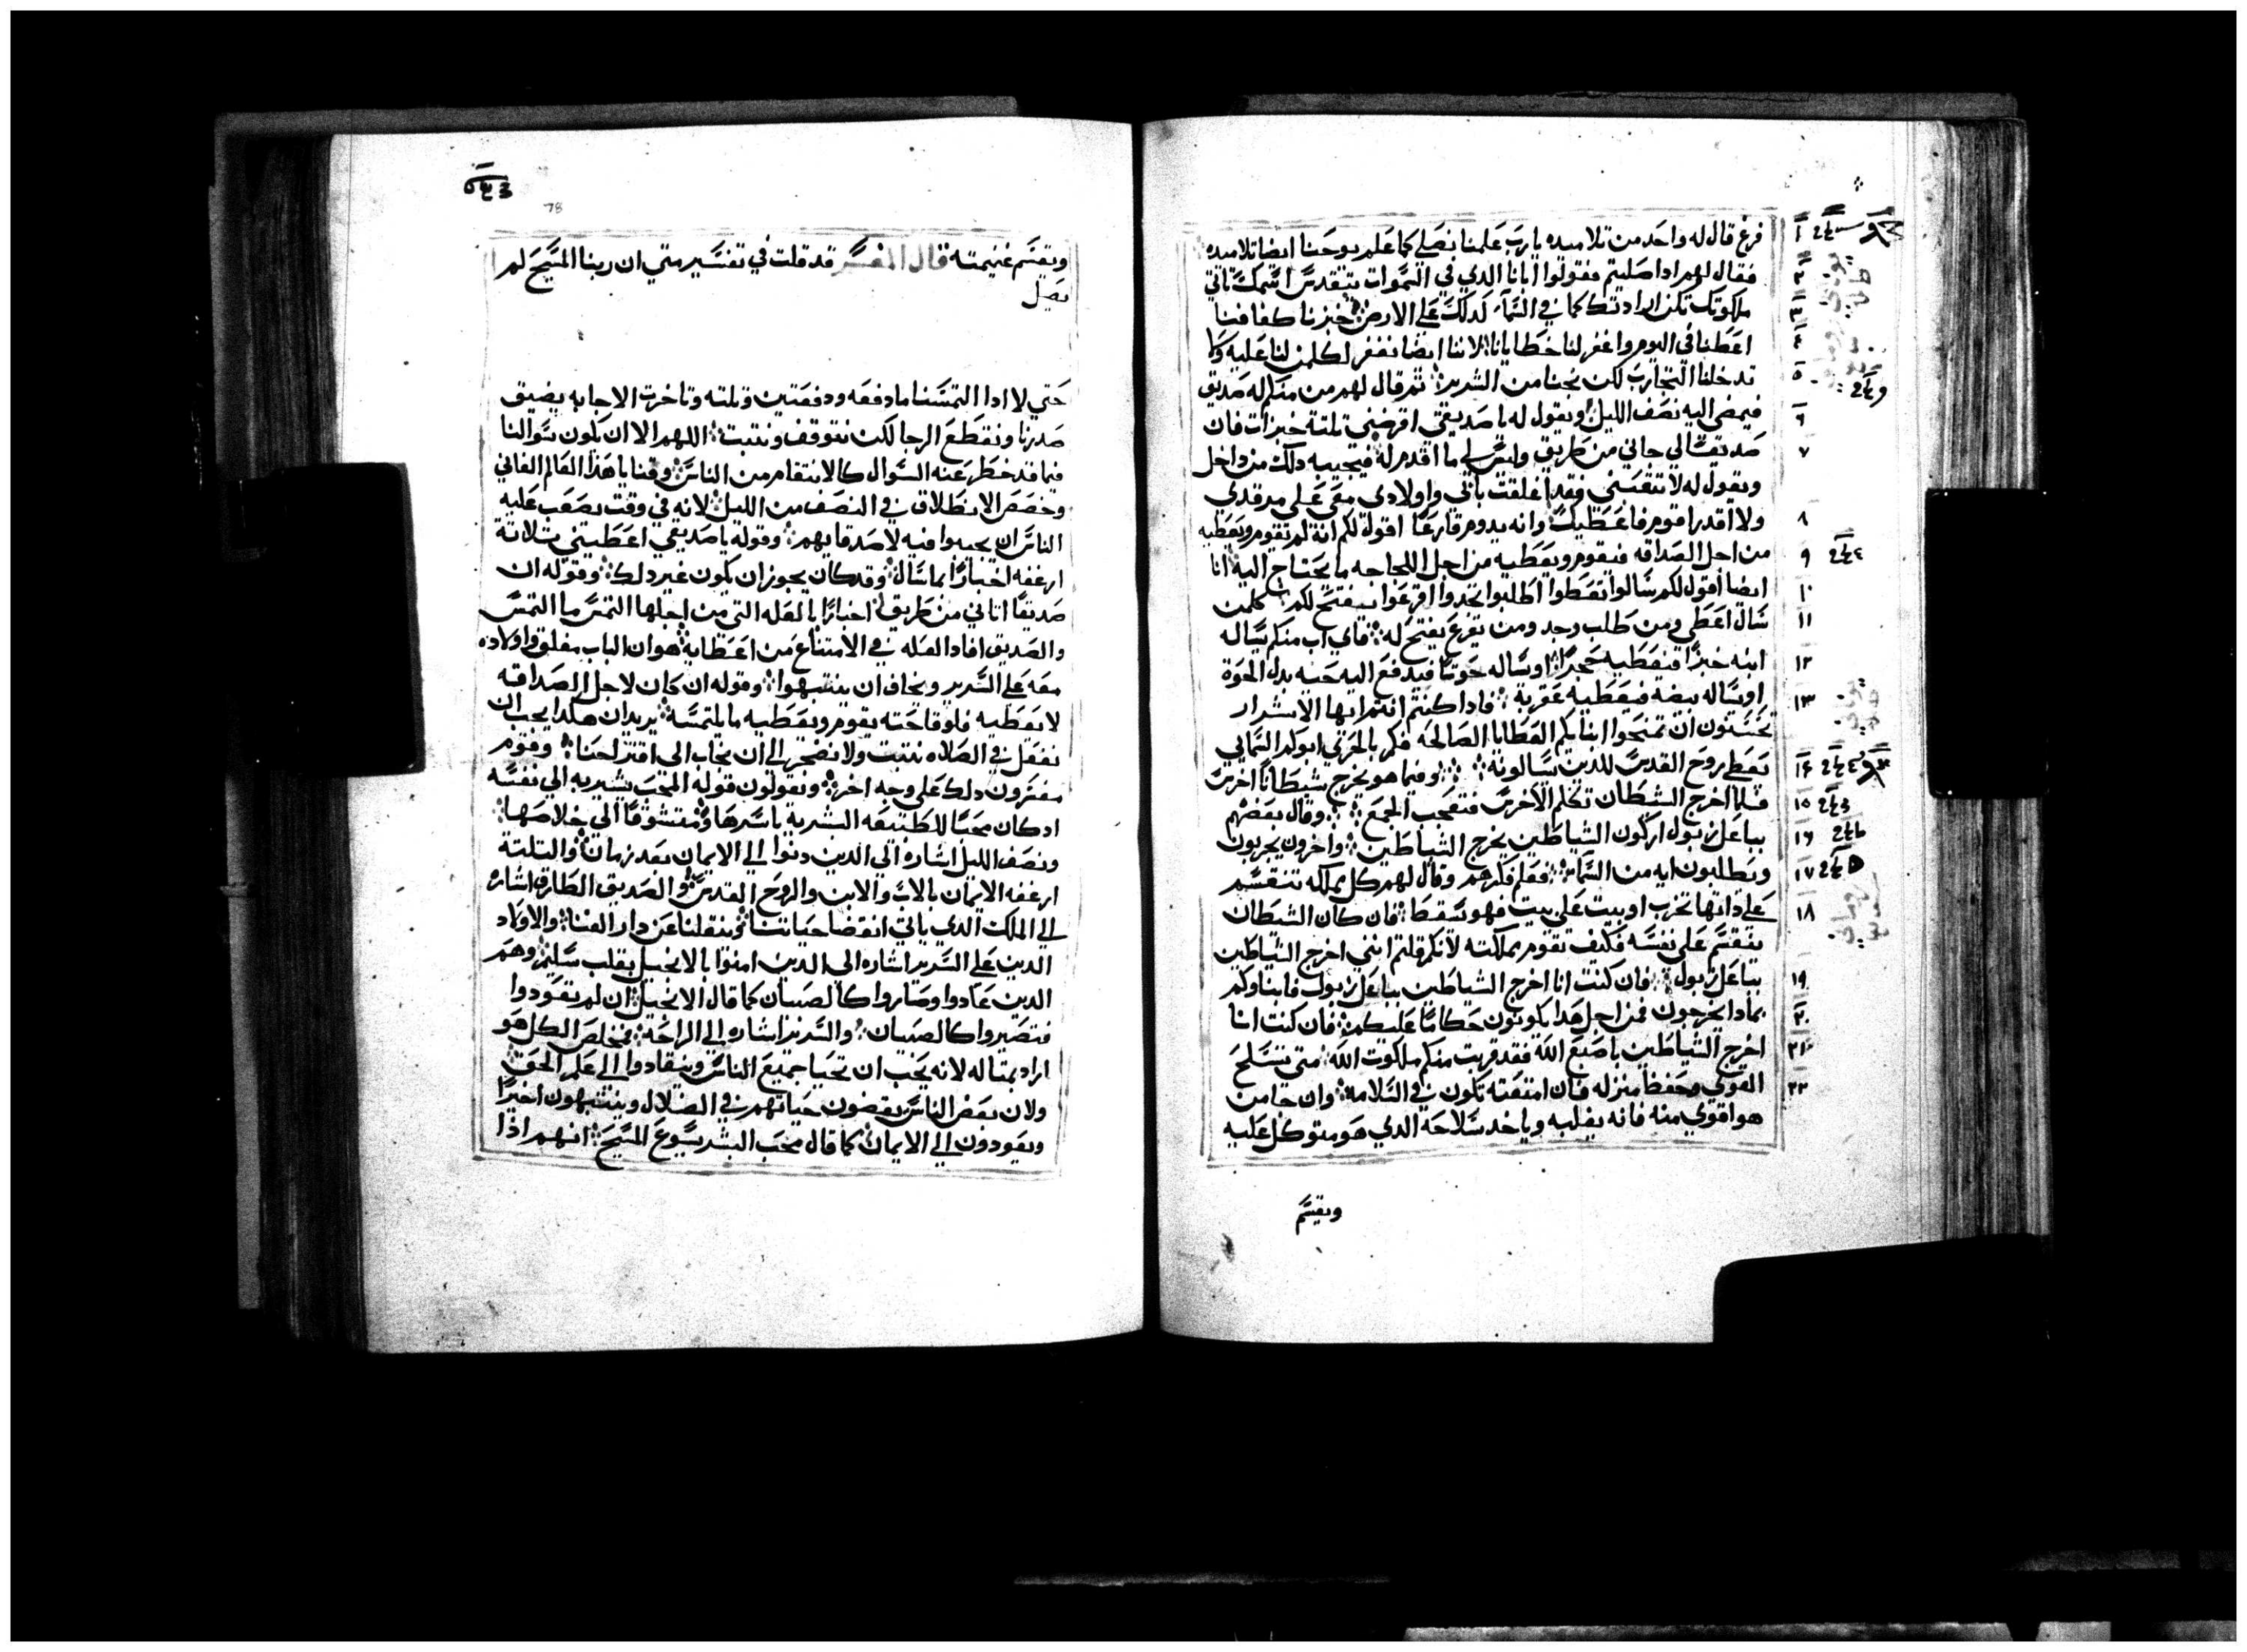 فرغ قال له واحد من تلاميده يارب علمنا نصلي كما علم يوحنا ايضا تلاميده
فقال لهم ادا صليتم فقولوا ابانا الدي في السموات يتقدس اسمك تاتي
ملكوتك تكن ارادتك كما في السما كدلك علي الارض خبزنا كفافنا
اعطنا في اليوم واغفر لنا خطايانا لاننا ايضا نغفر لكلمن لنا عليه ولا
تدخلنا التجارب لكن نجنا من الشرير ثم قال لهم من منكم له صديق
فيمضي اليه نصف الليل ويقول له يا صديقي اقرضني تلتة خبزات فان
صديقا لي جاني من طريق وليس لي ما اقدم له فيجيبه دلك من داخل
ويقول له لا تتعبني فقد اغلقت بابي واولادي معي علي مرقدي
ولا اقدر اقوم فاعطيك وانه يدوم قارعا اقول لكم انه لم يقوم ويعطيه
من اجل الصداقه فيقوم ويعطيه من اجل اللجاجه ما يحتاج اليه انا
ايضا اقول لكم سالوا تعطوا اطلبوا تجدوا اقرعوا يفتح لكم كلمن
سال اعطي ومن طلب وجد ومن يقرع يفتح له فاي اب منكم يساله
ابنه خبزا فيعطيه حجرا او يساله حوتا فيدفع اليه حيه بدل الحوة
او يساله بيضه فيعطيه عقربة فادا كنتم انتم ايها الاشرار
تحسنون ان تمنحوا ابنايكم العطايا الصالحه فكم بالحري ابوكم السمايي
يعطي روح القدس للدين يسالونه وفيما هو يخرج شيطانا اخرس
فلما اخرج الشيطان تكلم الاخرس فتعجب الجمع وقال بعضهم
بباعل زبول اركون الشياطين يخرج الشياطين واخرون يجربون
ويطلبون ايه من السما فعلم فكرهم وقال لهم كل مملكه تنقسم
علي داتها تخرب او بيت علي بيت فهو يسقط فان كان الشيطان
ينقسم علي نفسه فكيف تقوم مملكته لانكم قلتم انني اخرج الشياطين
بباعل زبول فان كنت انا اخرج الشياطين بباعل زبول فابناوكم
بمادا يخرجون فمن اجل هدا يكونون حكاما عليكم فان كنت انا
اخرج الشياطين باصبع الله فقد قربت منكم ملكوت الله متي تسلح
القوي وحفظ منزله فان امتعته تكون في السلامه وان جا من
هو اقوي منه فانه يغلبه وياخد سلاحه الدي هو متوكل عليه
ويقسم
78
ويقسم غنيمته قال المفسر قد قلت في تفسير متي ان ربنا المسيح لم
يصل
حتي لا ادا التمسنا ما دفعه ودفعتين وتلته وتاخرت الاجابه يضيق
صدرنا ونقطع الرجا لكن نتوقف ونتبت اللهم الا ان يكون سوالنا
فيما قد خطر عنه السوال كالانتقام من الناس وقنايا هذا العالم الفاني
وخصص الانطلاق في النصف من الليل لانه في وقت يصعب عليه
الناس ان يجيبوا فيه لاصدقايهم وقوله يا صديقي اعطيني تلاتة
ارغفه اخبارا بما سال وقد كان يجوز ان يكون غير دلك وقوله ان
صديقا اتاني من طريق اخبارا بالعله التي من اجلها التمس ما التمس
والصديق افاد العله في الامتناع من اعطايه هو ان الباب مغلق واولاده
معه علي السرير ويخاف ان ينتبهوا وقوله ان كان لاجل الصداقه
لا يعطيه فلوقاحته يقوم ويعطيه ما يلتمسه يريد ان هكدا يجب ان
نفعل في الصلاه نتبت ولا نضجر الي ان نجاب الي اقتراحنا وقوم
يفسرون دلك علي وجه اخر ويقولون قوله المحب يشير به الي نفسه
اد كان محبا للطبيعه البشرية باسرها ومتشوقا الي خلاصها
ونصف الليل اشاره الي الدين دنوا الي الايمان بعد زمان والتلته
ارغفه الايمان بالاب والابن والروح القدس والصديق الطارق اشاره
الي الملك الدي ياتي انقضا حياتنا وينقلنا عن دار الفنا والاولاد
الدين علي السرير اشاره الي الدين امنوا بالانجيل بقلب سليم وهم
الدين عادوا وصاروا كالصبيان كما قال الانجيل ان لم تعودوا
فتصيروا كالصبيان والسرير اشاره الي الراحه فمخلص الكل هو
اراد بمتاله لانه يحب ان تحيا جميع الناس وينقادوا الي علم الحق
ولان بعض الناس يقضون حياتهم في الضلال وينتبهون اخيرا
ويعودون الي الايمان كما قال محب البشر يسوع المسيح انهم اذا